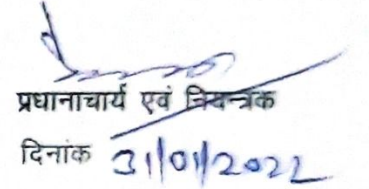 प्रधानाचार्य एवं नियन्त्रक
दिनांक 31/01/2022